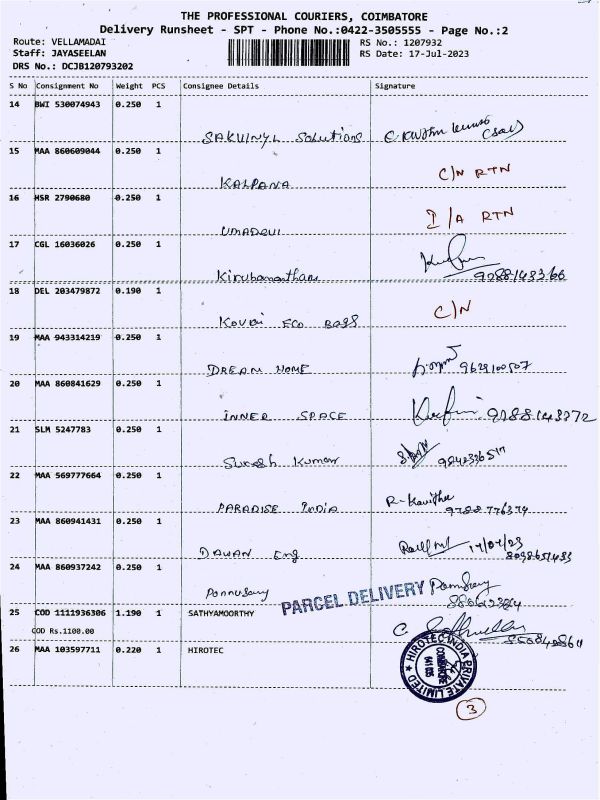 THE PROFESSIONAL COURIERS, COIMBATORE
Delivery Runsheet - SPT - Phone No.:0422-3505555 - Page No.:2
Route: VELLAMADAI RS No.: 1207932
Staff: JAYASEELAN RS Date: 17-Jul-2023
DRS No.: DCJB120793202
S No Consignment No Weight PCS Consignee Details Signature
14 BWI 530074943 0.250 1
SAKUINYL Solutions
15 MAA 860609044 0.250 1
KALPANA C/N RTN
16 HSR 2790680 0.250 1
UMADEVI I/A RTN
17 CGL 16036026 0.250 1
Kirubananthan 9088143366
18 DEL 203479872 0.190 1
KOVAI ECO BAGS C/N
19 MAA 943314219 0.250 1
DREAM HOME
20 MAA 860841629 0.250 1
INNER SPACE
21 SLM 5247783 0.250 1
Suresh Kumar
22 MAA 569777664 0.250 1
PARADISE INDIA R. Kavitha
23 MAA 860941431 0.250 1
DAWAN Eng 17/07/23
24 MAA 860937242 0.250 1
Ponnusamy PARCEL DELIVERY
25 COD 1111936306 1.190 1 SATHYAMOORTHY
COD Rs.1100.00
26 MAA 103597711 0.220 1 HIROTEC
HIROTEC INDIA PRIVATE LIMITED
COIMBATORE
3